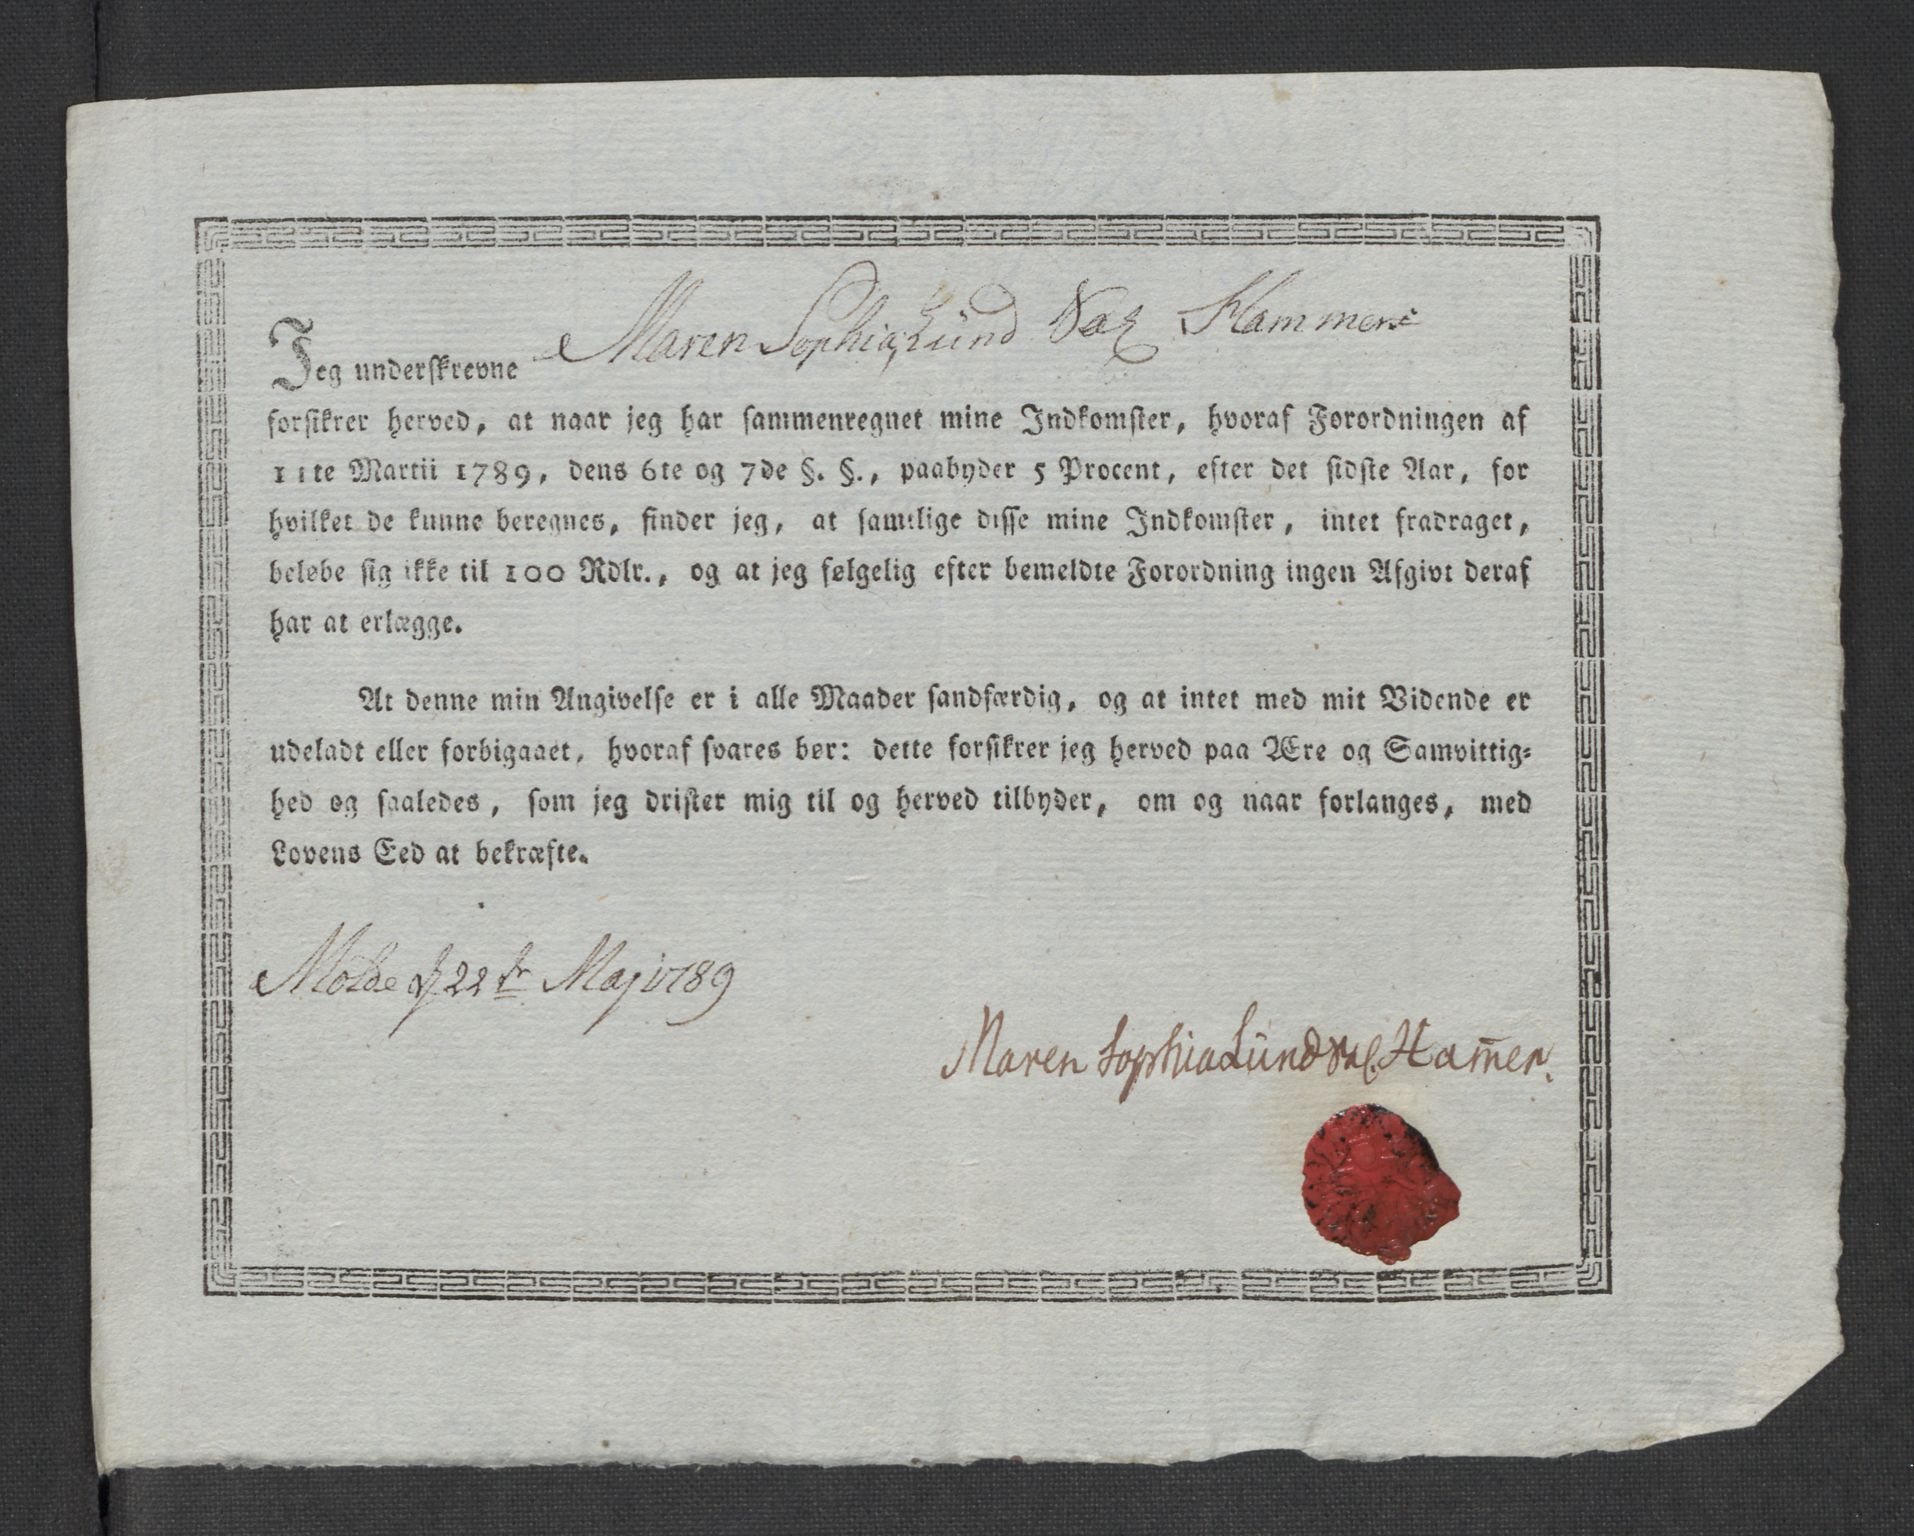 Jeg underskrevne Maren Sophia Lünd Sal Hammers
forsikrer herved, at naar jeg har sammenregnet mine Indkomster, hvoraf Forordningen af
11te Martii 1789, dens 6te og 7de §. §., paabyder 5 Procent, efter det sidste Aar, for
hvilket de kunne beregnes, finder jeg, at samtlige disse mine Indkomster, intet fradraget,
beløbe sig ikke til 100 Rdlr., og at jeg følgelig efter bemeldte Forordning ingen Afgivt deraf
har at erlægge.
At denne min Angivelse er i alle Maader sandfærdig, og at intet med mit Vidende er
udeladt eller forbigaaet, hvoraf svares bør: dette forsikrer jeg herved paa Ære og Samvittig=
hed og saaledes, som jeg drister mig til og herved tilbyder, om og naar forlanges, med
Lovens Eed at bekræfte.
Molde d 22de Maj 1789
Maren Sophia Lünd Sal. Ham̄er.